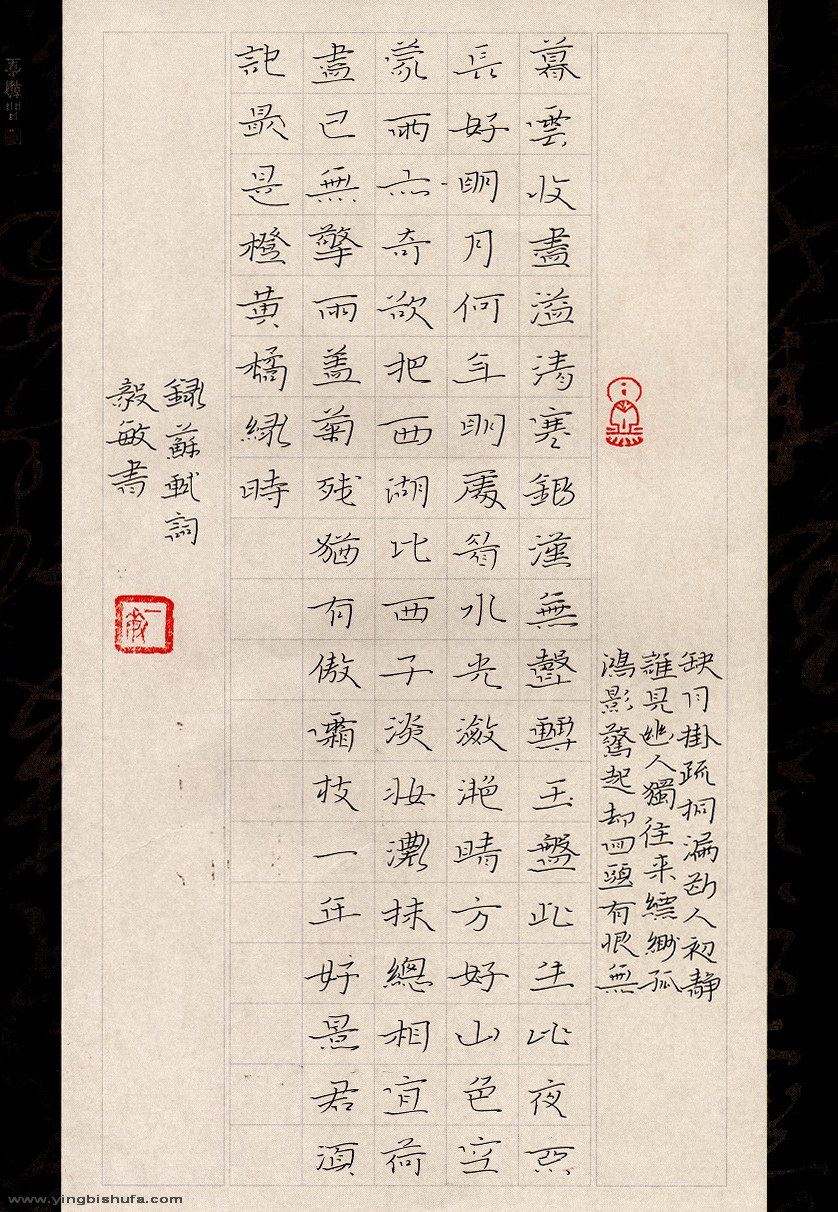 缺月掛疏桐漏断人初靜
誰見幽人獨往来縹緲孤
鴻影驚起却回頭有恨無
暮雲收盡溢清寒銀漢無聲轉玉盤此生此夜不
長好明月何年明處看水光瀲滟晴方好山色空
蒙雨亦奇欲把西湖比西子淡妝濃抹總相宜荷
盡已無擎雨盖菊残猶有傲霜枝一年好景君須
記最是橙黄橘綠時
録蘇軾詞
毅敏書
www.yingbishufa.com